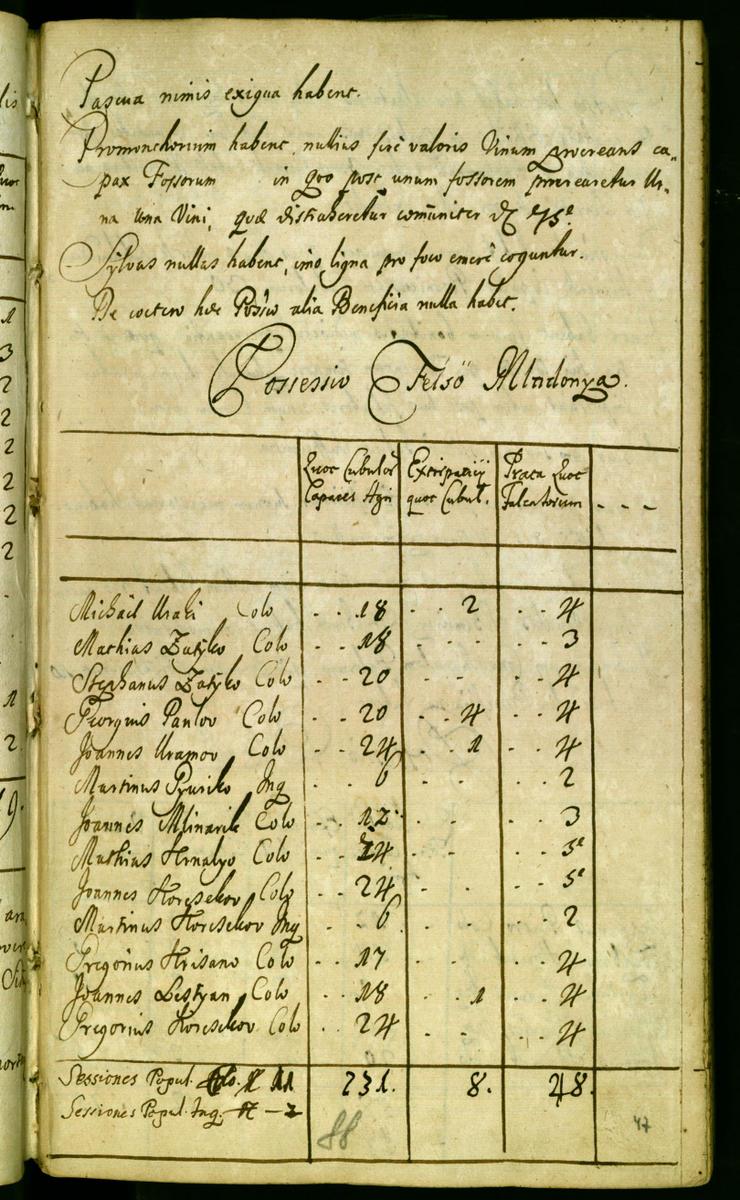 Pascua nimis exigua habent.
Promonthorium habent nullius fere valoris Vinum procreans ca,,
pax Fossorum in quo post unum fossorem procrearetur Ur,,
na una Vini, quæ distraheretur comuniter
Sylvas nullas habent, imo ligna pro foco emere coguntur.
De coetero hæc Possio alia Beneficia nulla habet.
Possessio Felsö Mladonya.
Quot Cubulor Extirpatÿ Prata Quot
Capaces Agri quot Cubul. Falcatorum - - -
Michail Uraki Colo . . 18 . . 2 . . 4
Mathias Zatyko Colo . . 18 - - - . . 3
Stephanus Zatyko Colo . . 20 - - . . 4
Georgius Pavlov Colo . . 20 . . 4 . . 4
Joannes Uramov Colo . . 24 . . 1 . . 4
Martinus Inq . . 6 . . . . 2
Joannes Mlinarik Colo . . 12 . . . . 3
Mathias Hrnalyo Colo . . 24 . . . . 5
Joannes Horeschkov Colo . . 24 . . . . 5
Martinus Horeschkov Inq . . 6 . . . . 2
Gregorius Hrisano Colo . . 17 . . . . 4
Joannes Lestyan Colo . . 18 . . 1 . . 4
Gregorius Horeschkov Colo . . 24 . . . . 4
Sessiones Popul. Colo. 11 231. 8. 48.
Sessiones Popul. Inq. - 2
88
47